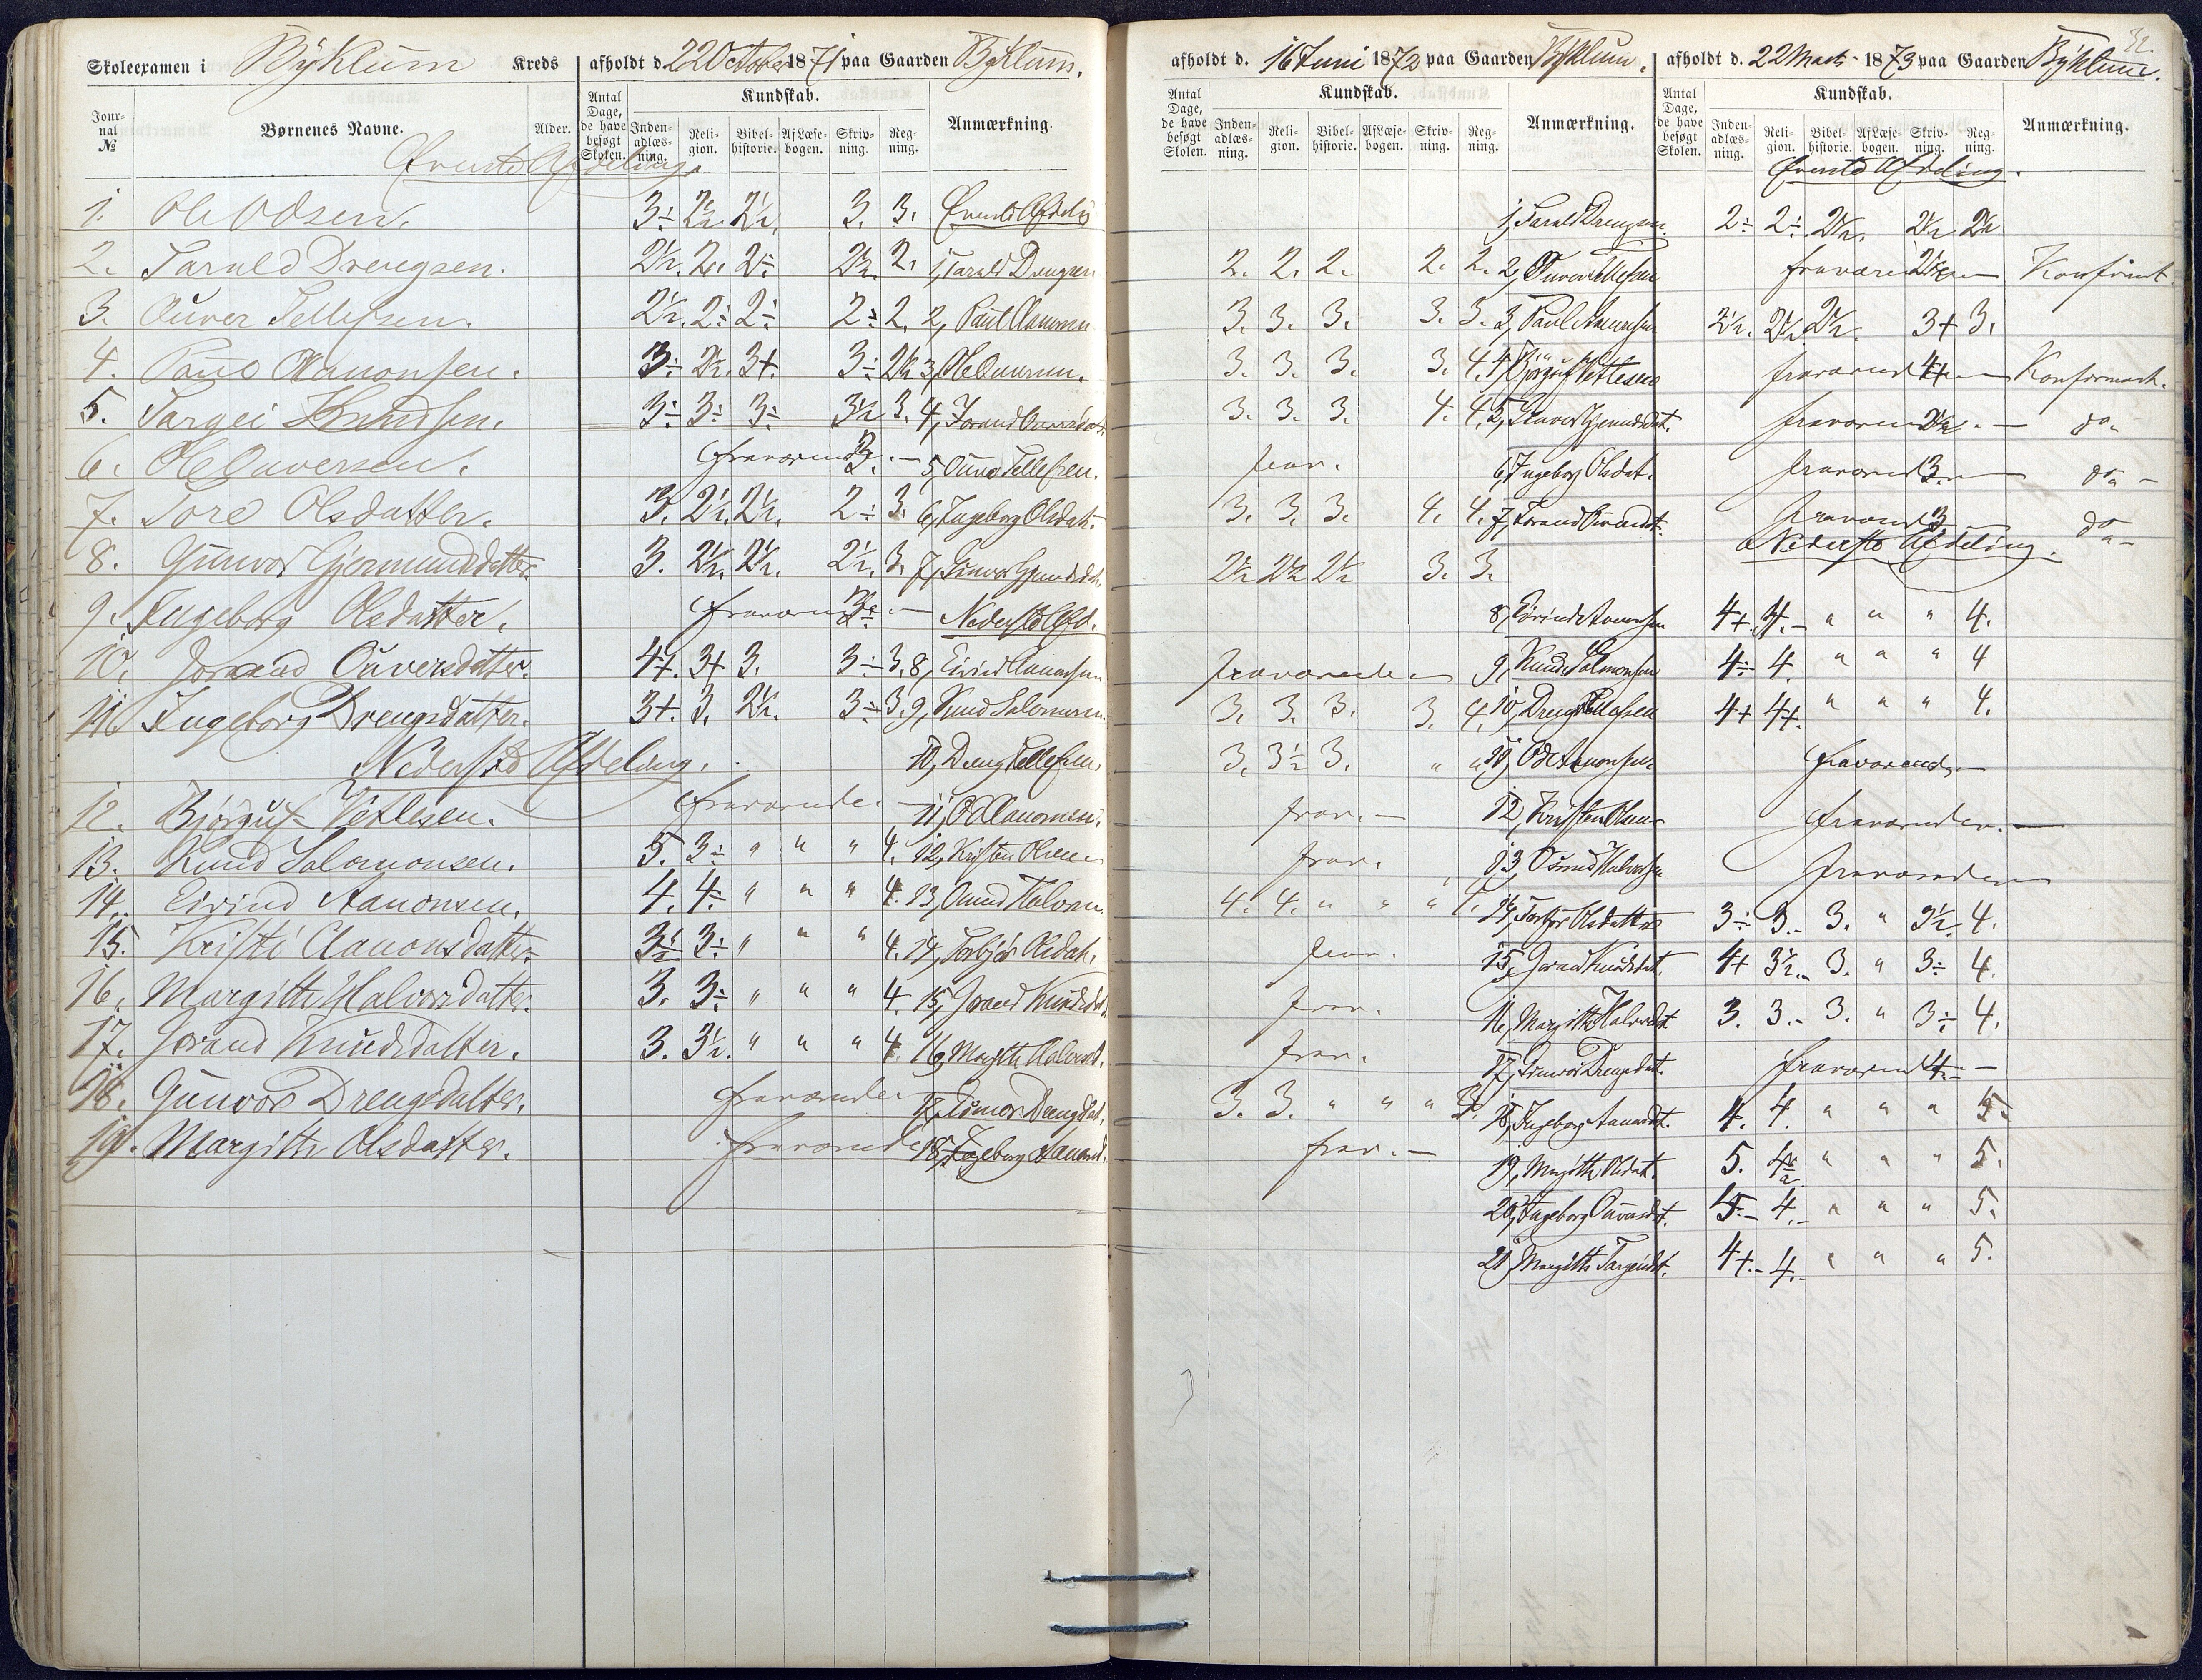 Skoleexamen i Byklum Kreds afholdt d. 22 October 1871 paa Gaarden Byklum.
Jour-nal № Børnenes Navne. Alder. Antal Dage, de have besøgt Skolen. Kundskab. Inden-adlæs-ning. Reli-gion. Bibel-historie. Af Læse-bogen. Skriv-ning. Reg-ning. Anmærkning.
Øverste Afdeling.
1. Ole Odsen. 3÷ 2½ 2½. 3. 3. Øverste Afdeling
2. Tarald Drengsen. 2½. 2. 2÷ 2½. 2. 1, Tarald Drengsen
3. Ouver Tellefsen. 2½. 2÷ 2÷ 2÷ 2. 2, Paul Aanonsen
4. Paul Aanonsen. 3÷ 2½. 3+. 3÷ 2½ 3,
5. Targei Knudsen. 3÷ 3÷ 3÷ 3½ 3. 4, Jorand Ouversdat.
6. Ole Ouversen. fraværende 3. 5, Ouver Tellefsen.
7. Tore Olsdatter. 3. 2½. 2½. 2÷ 3. 6, Ingeborg Olsdat.
8. Gunvor Gjermundsdatter. 3. 2½. 2½. 2½. 3. 7, Gunvor Gjmundsdat.
9. Ingeborg Olsdatter. fraværende Nederste Afd.
10. Jorand Ouversdatter. 4+. 3+ 3. 3÷ 3. 8, Eivind Aanonsen
11. Ingeborg Drengsdatter. 3+. 3. 2½. 3÷ 3. 9, Knud Salomonsen
Nederste Afdeling. 10, Dreng Tellefsen
12. Bjørguf Vetlesen. fraværende 11, Od Aanonsen.
13. Knud Salomonsen. 5. 3÷ " " " 4. 12, Kristen Olsen
14. Eivind Aanonsen. 4. 4÷ " " " 4. 13, Osmund Halvorsen
15. Kristi Aanonsdatter. 3½ 3÷ " " " 4. 14, Torbjør Olsdat.
16. Margith Halvorsdatter. 3. 3÷ " " " 4. 15, Jorand Knudsdat.
17. Jorand Knudsdatter. 3. 3½. " " " 4. 16, Margith Halvorsd.
18. Gunvor Drengsdatter. fraværende 17, Gunvor Drengsdat.
19. Margith Olsdatter. fraværende 18, Ingeborg Aanonsd.
afholdt d. 16 Juni 1872 paa Gaarden Byklum.
Antal Dage, de have besøgt Skolen. Kundskab. Inden-adlæs-ning. Reli-gion. Bibel-historie. Af Læse-bogen. Skriv-ning. Reg-ning. Anmærkning.
1, Tarald Drengsen.
2. 2. 2. 2. 2. 2, Ouver Tellefsen
3. 3. 3. 3. 3. 3, Paul Aanonsen
3. 3. 3. 3. 4. 4, Bjørguf Vetlesen
3. 3. 3. 4. 4. 5, Gunvor Gjermundsdat.
frav. 6, Ingeborg Olsdat.
3. 3. 3. 4. 4. 7, Jorand Ouversdt.
2½ 2½ 2½ 3. 3.
8, Eivind Aanonsen
fraværende 9, Knud Salomonsen
3. 3. 3. 3. 4. 10, Dreng Tellefsen
3. 3½ 3. " " 11, Od Aanonsen
frav. 12, Kristen Olsen
frav. 13, Osmund Halvorsen
4. 4. " " " 4. 14, Torbjør Olsdatter
frav. 15, Jorand Knudsdat.
frav. 16, Margith Halvorsdat
frav. 17, Gunvor Drengsdat.
3. 3. " " " 18, Ingeborg Aanonsdt.
frav. 19, Margith Olsdat.
20, Ingeborg Ouversdt.
21, Margith Targeisdt.
afholdt d. 22 Marts 1873 paa Gaarden Byklum.
32.
Antal Dage, de have besøgt Skolen. Kundskab. Inden-adlæs-ning. Reli-gion. Bibel-historie. Af Læse-bogen. Skriv-ning. Reg-ning. Anmærkning.
Øverste Afdeling.
2÷ 2÷ 2½. 2½ 2½
fraværende Konfirmt.
2½. 2½ 2½. 3+ 3.
fraværende 4+ Konfirmert.
fraværende 2½ do.
fraværende 3. do
fraværende 3 do
Nederste Afdeling.
4+. 4. " " " 4.
4÷ 4. " " " 4
4+ 4+. " " " 4.
fraværende
fraværende.
fraværende
3÷ 3. 3. " 3½. 4.
4+ 3½. 3. " 3÷ 4.
3. 3. 3. " 3÷ 4.
fraværende 4.
4. 4. " " " 5.
5. " " " 5.
4. " " " 5.
4+. 4. " " " 5.